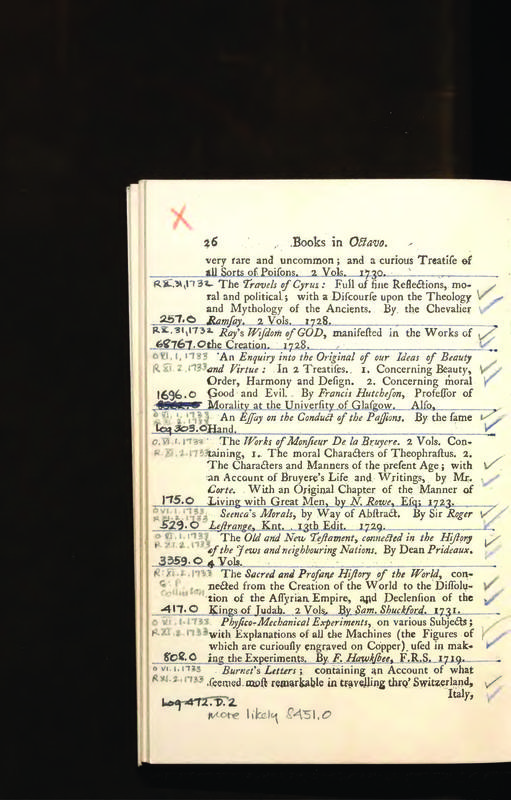 26 Books in Octavo.
very rare and uncommon; and a curious Treatiſe of
all Sorts of Poiſons. 2 Vols. 1730.
R XI.31,1732 The Travels of Cyrus: Full of fine Reflections, mo-
ral and political; with a Diſcourſe upon the Theology
and Mythology of the Ancients. By the Chevalier
257.O Ramſay. 2 Vols. 1728.
R XI.31,1732 Ray's Wiſdom of GOD, manifeſted in the Works of
68767.O the Creation. 1728.
O VI.1.1733 An Enquiry into the Original of our Ideas of Beauty
R XI.2.1733 and Virtue: In 2 Treatiſes. 1. Concerning Beauty,
Order, Harmony and Deſign. 2. Concerning moral
1696.O Good and Evil. By Francis Hutcheſon, Profeſſor of
Morality at the Univerſity of Glaſgow. Alſo,
An Eſſay on the Conduct of the Paſſions. By the ſame
Log 305.O Hand.
O.VI.1.1733 The Works of Monſieur De la Bruyere. 2 Vols. Con-
R.XI.2.1733 taining, 1. The moral Characters of Theophraſtus. 2.
The Characters and Manners of the preſent Age; with
an Account of Bruyere's Life and Writings, by Mr.
Corte. With an Original Chapter of the Manner of
175.O Living with Great Men, by N. Rowe, Eſq; 1723.
O VI.1.1733 Seenca's Morals, by Way of Abſtract. By Sir Roger
529.O Leſtrange, Knt. 13th Edit. 1729.
O VI.1.1733 The Old and New Teſtament, connected in the Hiſtory
R.XI.2.1733 of the Jews and neighbouring Nations. By Dean Prideaux.
3359.O 4 Vols.
R.XI.2.1733 The Sacred and Profane Hiſtory of the World, con-
nected from the Creation of the World to the Diſſolu-
tion of the Aſſyrian Empire, and Declenſion of the
417.O Kings of Judah. 2 Vols. By Sam. Shuckford. 1731.
O VI.1.1733 Phyſico-Mechanical Experiments, on various Subjects;
R.XI.2.1733 with Explanations of all the Machines (the Figures of
which are curiouſly engraved on Copper) uſed in mak-
808.O ing the Experiments. By F. Hawkſbee, F.R.S. 1719.
O VI.1.1733 Burnet's Letters; containing an Account of what
R XI.2.1733 ſeemed moſt remarkable in travelling thro' Switzerland,
Italy,
Log 472.D.2
more likely 8451.O